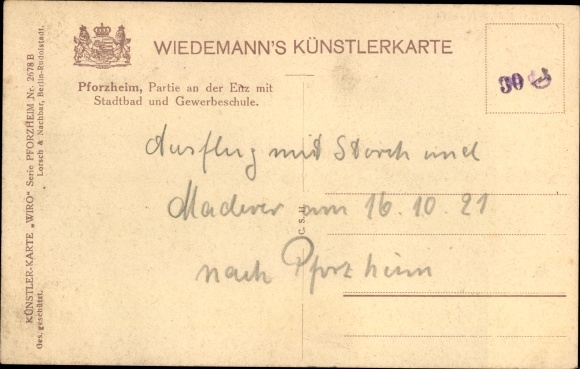 WIEDEMANN'S KÜNSTLERKARTE
Pforzheim, Partie an der Enz mit
Stadtbad und Gewerbeschule.
30
Ausflug mit Storch und
Maderer am 16.10.21
nach Pforzheim
C. S. U.
KÜNSTLER-KARTE „WIRO" Serie PFORZHEIM Nr. 2678 B
Ges. geschützt. Lorsch & Nachbar, Berlin-Rudolstadt.